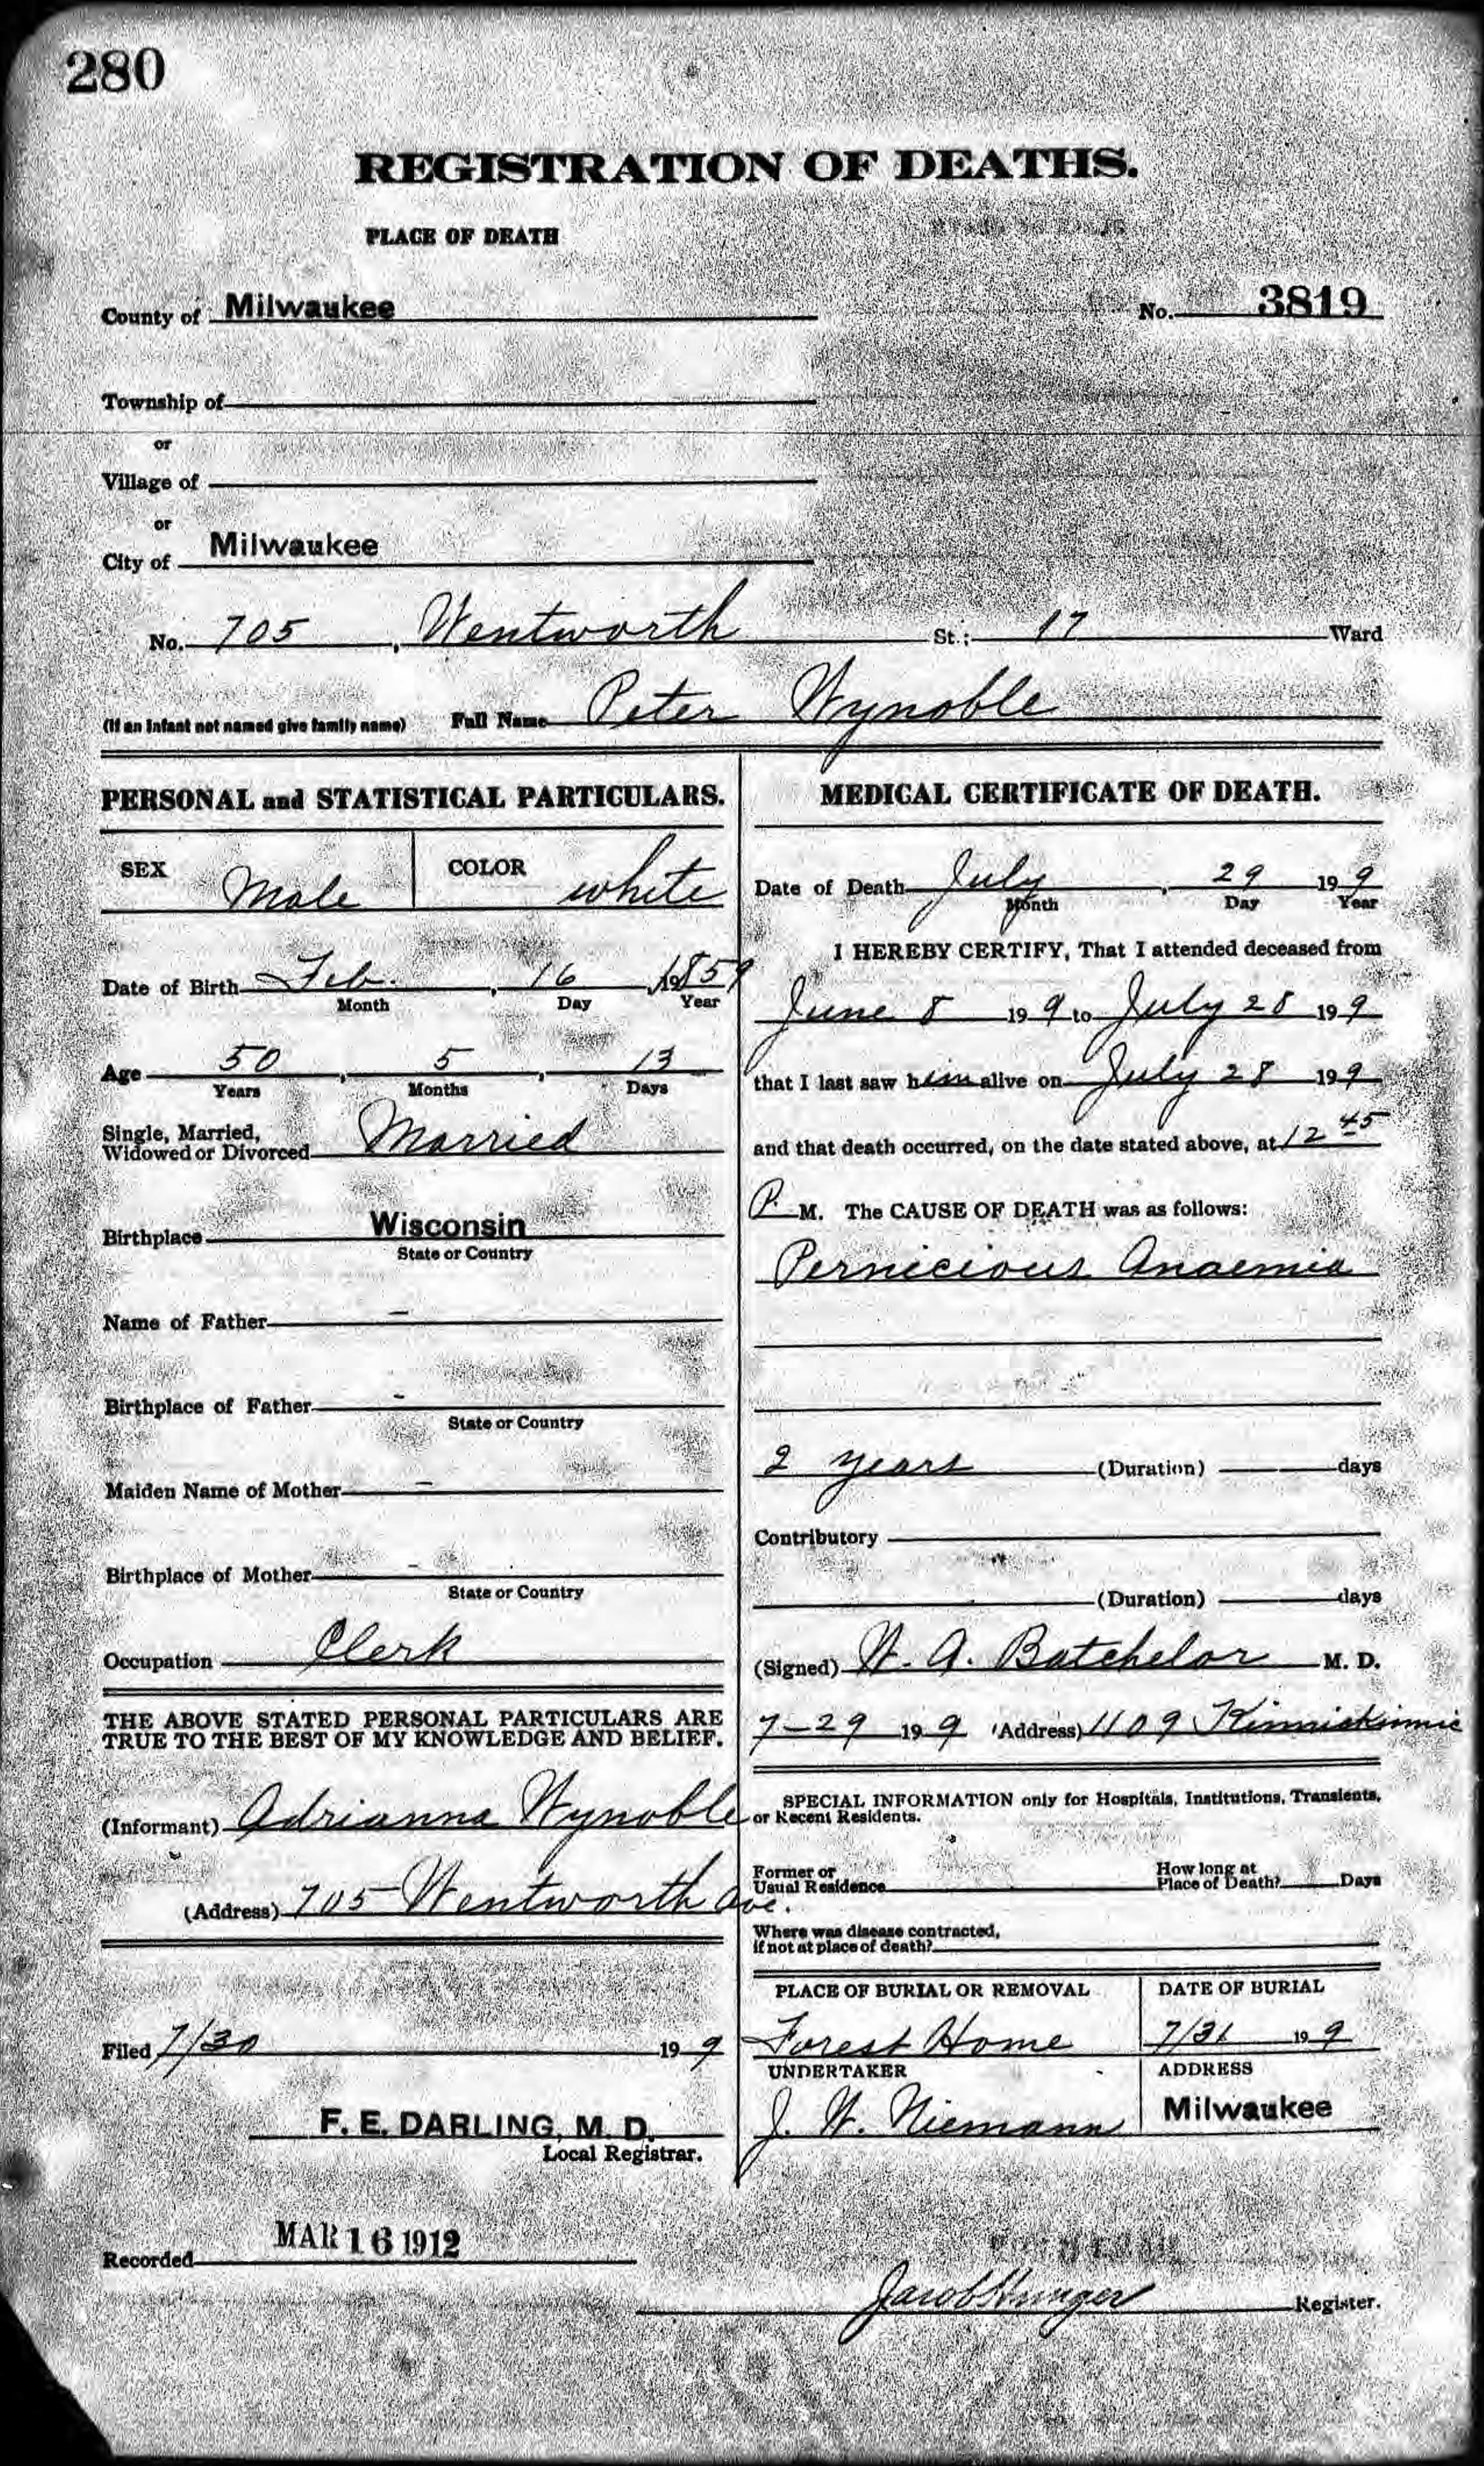 280
REGISTRATION OF DEATHS.
PLACE OF DEATH
County of Milwaukee No. 3819
Township of
or
Village of
or
City of Milwaukee
No. 705, Wentworth St.; 17 Ward
(If an infant not named give family name) Full Name Peter Wynoble
PERSONAL and STATISTICAL PARTICULARS.
SEX Male COLOR white
Date of Birth Feb. , 16 , 1859
Month Day Year
Age 50 , 5 , 13
Years Months Days
Single, Married,
Widowed or Divorced Married
Birthplace Wisconsin
State or Country
Name of Father -
Birthplace of Father -
State or Country
Maiden Name of Mother -
Birthplace of Mother -
State or Country
Occupation Clerk
THE ABOVE STATED PERSONAL PARTICULARS ARE
TRUE TO THE BEST OF MY KNOWLEDGE AND BELIEF.
(Informant) Adrianna Wynoble
(Address) 705 Wentworth Ave.
Filed 7/30 19 9
F. E. DARLING, M. D.
Local Registrar.
MEDICAL CERTIFICATE OF DEATH.
Date of Death July , 29 19 9
Month Day Year
I HEREBY CERTIFY, That I attended deceased from
June 8 19 9 to July 28 19 9
that I last saw him alive on July 28 19 9
and that death occurred, on the date stated above, at 12 45
P. M. The CAUSE OF DEATH was as follows:
Pernicious Anaemia
2 years (Duration) days
Contributory
(Duration) days
(Signed) H. A. Batchelor M. D.
7-29 19 9 (Address) 1109 Kinnickinnic
SPECIAL INFORMATION only for Hospitals, Institutions, Transients,
or Recent Residents.
Former or
Usual Residence
How long at
Place of Death? Days
Where was disease contracted,
if not at place of death?
PLACE OF BURIAL OR REMOVAL DATE OF BURIAL
Forest Home 7/31 19 9
UNDERTAKER ADDRESS
J. H. Niemann Milwaukee
Recorded MAR 16 1912
Jacob Hunger Register.